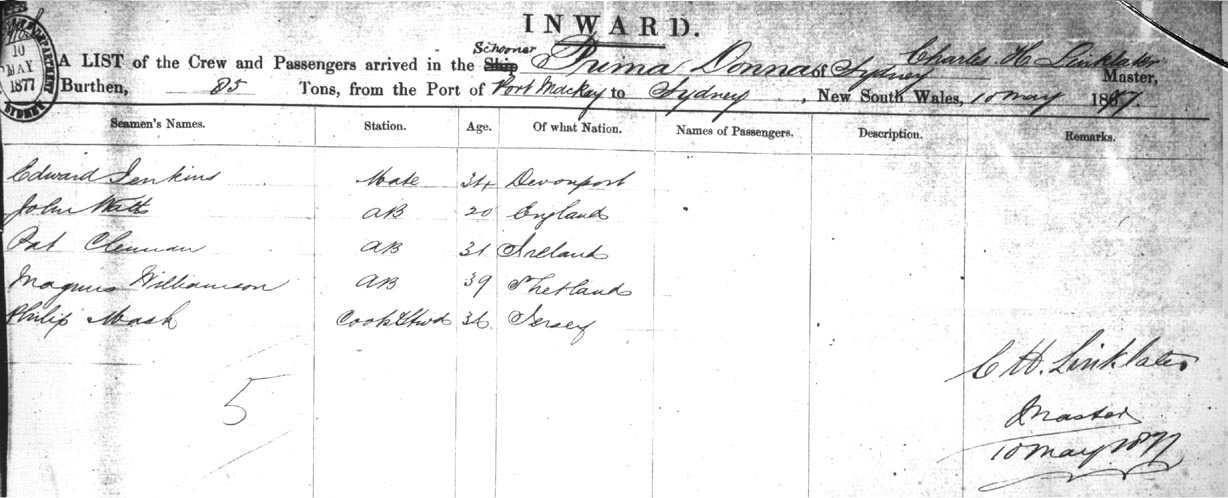 INWARD.
10
MAY
1877
SYDNEY
A LIST of the Crew and Passengers arrived in the Schooner Ship Prima Donna of Sydney Charles H Linklater Master,
Burthen, 85 Tons, from the Port of Port Mackay to Sydney, New South Wales, 10 May 1877.
Seamen's Names. Station. Age. Of what Nation. Names of Passengers. Description. Remarks.
Edward Jenkins Mate 34 Devonport
John Watts AB 20 England
Pat AB 31 Ireland
Magnus Williamson AB 39 Shetland
Philip Mash Cook & Stwd 36 Jersey
5
C H. Linklater
Master
10 May 1877